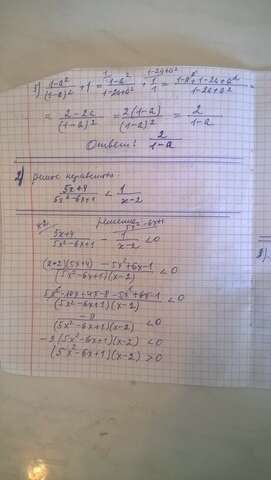 1) (1-a²)/(1-a)² + 1 = (1-a²)/(1-2a+a²) + 1/1 = (1-a²+1-2a+a²)/(1-2a+a²) =
= (2-2a)/(1-a)² = 2(1-a)/(1-a)² = 2/(1-a)
Ответ: 2/(1-a)
2)
(5x+4)/(5x²-6x+1) < 1/(x-2)
решение
(5x+4)/(5x²-6x+1) - 1/(x-2) < 0
((x+2)(5x+4) - 5x²+6x-1)/((5x²-6x+1)(x-2)) < 0
(5x²-10x+4x-8-5x²+6x-1)/((5x²-6x+1)(x-2)) < 0
-9/((5x²-6x+1)(x-2)) < 0
-9(5x²-6x+1)(x-2) < 0
(5x²-6x+1)(x-2) > 0